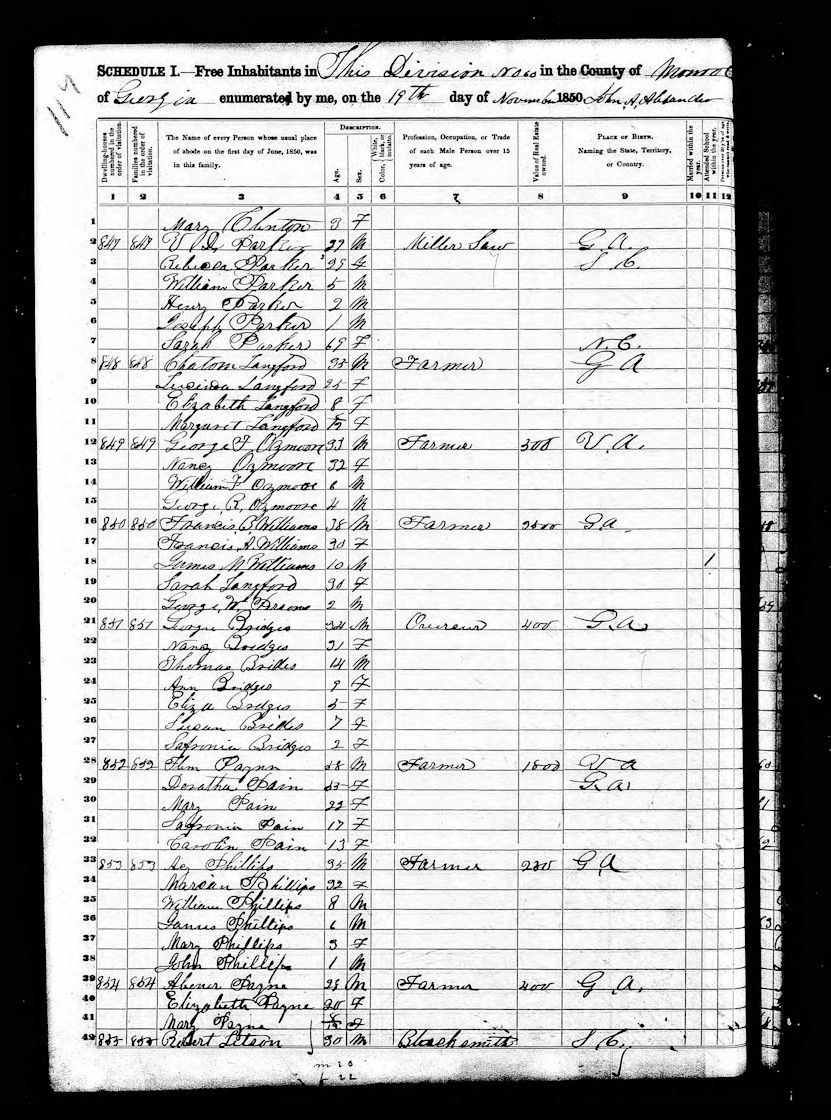 117
SCHEDULE I.—Free Inhabitants in This Division No 60 in the County of Monroe
of Georgia enumerated by me, on the 19th day of November 1850. John A. Alexander
Dwelling-houses numbered in the order of visitation.
Families numbered in the order of visitation.
The Name of every Person whose usual place of abode on the first day of June, 1850, was in this family.
DESCRIPTION.
Age.
Sex.
Color, White, black, or mulatto.
Profession, Occupation, or Trade of each Male Person over 15 years of age.
Value of Real Estate owned.
PLACE OF BIRTH. Naming the State, Territory, or Country.
Married within the year.
Attended School within the year.
1 2 3 4 5 6 7 8 9 10 11 12
1 Mary Clinton 3 F
2 847 847 Parker 27 M Miller Saw G A.
3 Rebecca Parker F S. C.
4 William Parker 5 M
5 Henry Parker 2 M
6 Joseph Parker 1 M
7 Sarah Parker 69 F N. C.
8 848 848 Chatom Langford 35 M Farmer G A
9 Lucinda Langford 25 F
10 Elizabeth Langford 8 F
11 Margaret Langford F
12 849 849 George F Ozmoore 33 M Farmer 300 V. A.
13 Nancy Ozmoore 32 F
14 William F Ozmoore 6 M
15 George, R, Ozmoore 4 M
16 850 850 Francis, B Williams 38 M Farmer 2500 G a.
17 Francis, A Williams 30 F
18 James M Williams 10 M 1
19 Sarah Langford 30 F
20 George, W, Parsons 2 M
21 851 851 George Bridges 34 M 400 G. a
22 Nancy Bridges 31 F
23 Thomas Brides 14 M
24 Ann Bridges 9 F
25 Eliza Bridges 5 F
26 Susan Brides 7 F
27 Safronia Bridges 2 F
28 852 852 Paynn 58 M Farmer 1800 V a
29 Doratha Pain 53 F G. a
30 Mary Pain 22 F
31 Safronia Pain 17 F
32 Carolin Pain 13 F
33 853 853 Phillips 35 M Farmer 200 G A
34 Marian Phillips 32 F
35 William Phillips 8 M
36 James Phillips 6 M
37 Mary Phillips 3 F
38 John Phillips 1 M
39 854 854 Abener Payne 29 M Farmer 400 G A.
40 Elizabeth Payne 20 F
41 Mary Payne F
42 855 855 Robert Letson 30 M Blacksmith S. C.
m 20
f 22